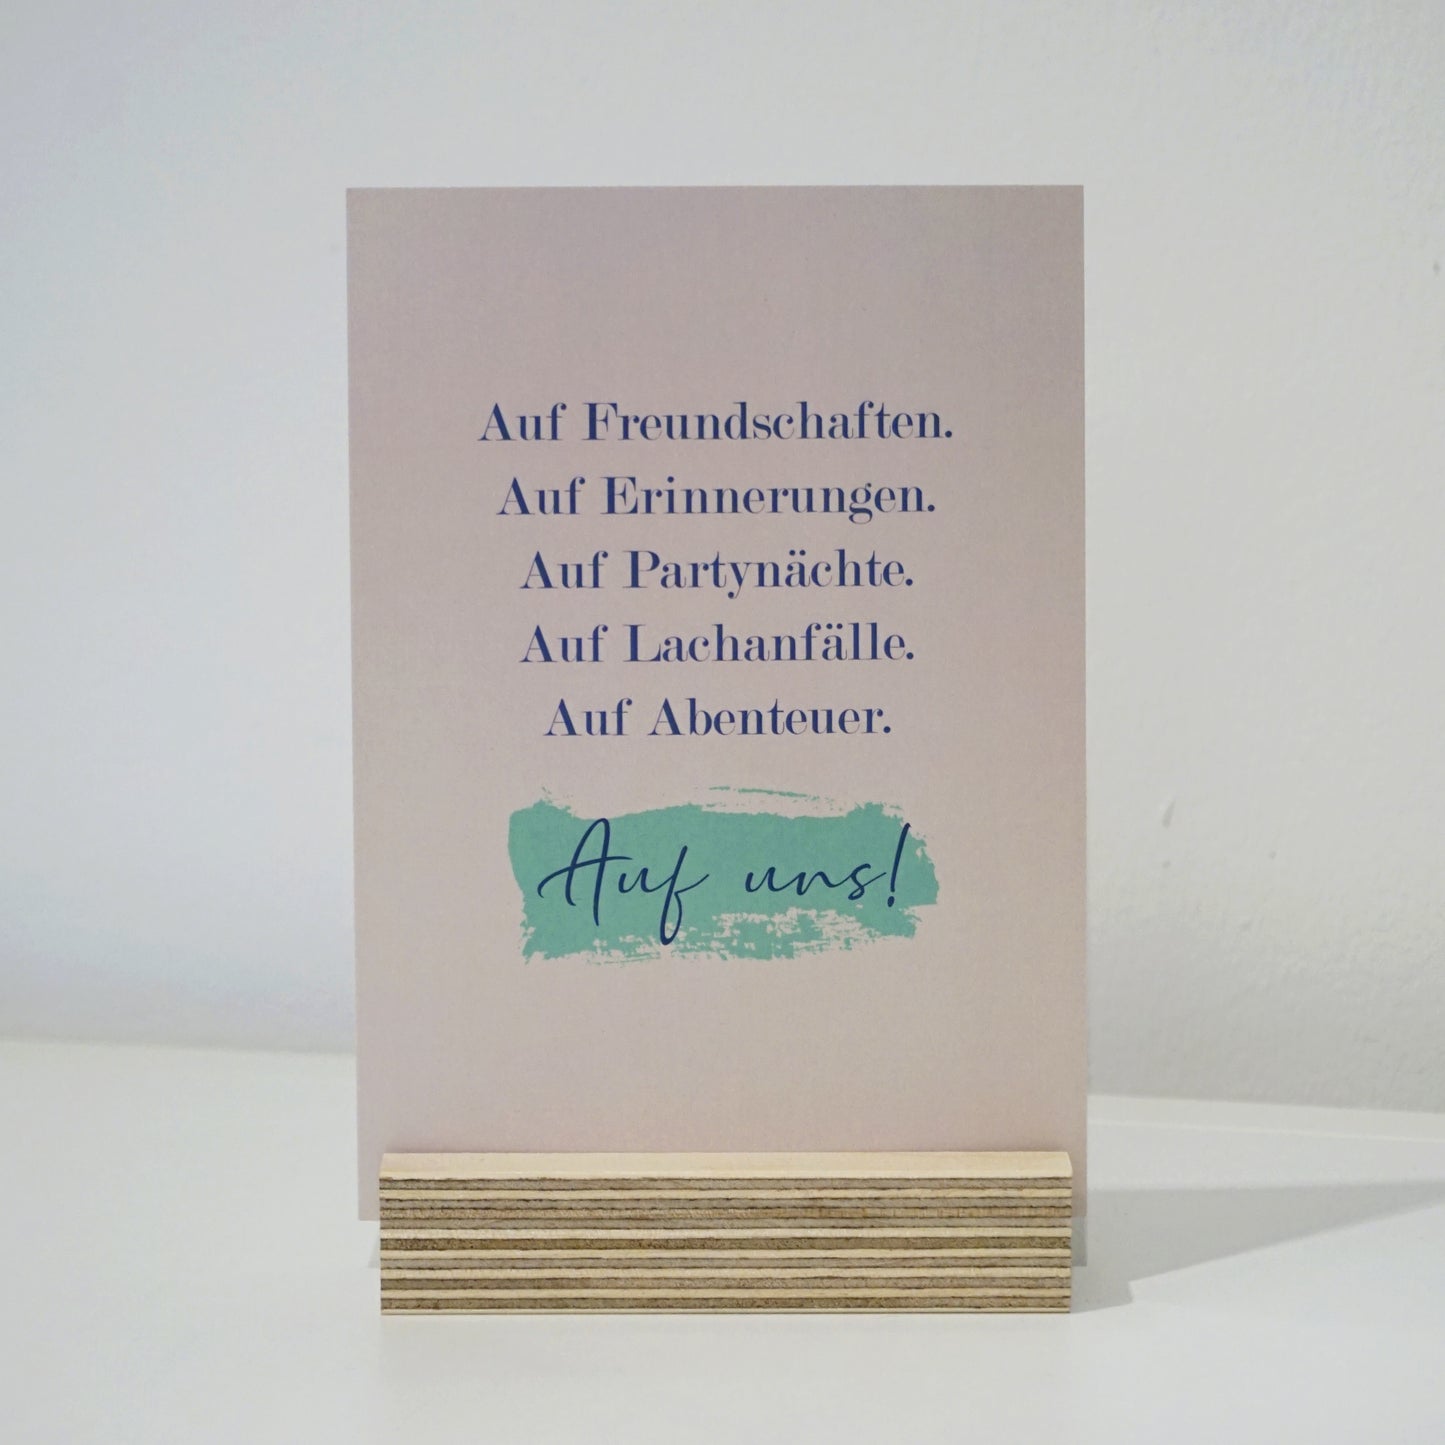 Auf Freundschaften.
Auf Erinnerungen.
Auf Partynächte.
Auf Lachanfälle.
Auf Abenteuer.
Auf uns!